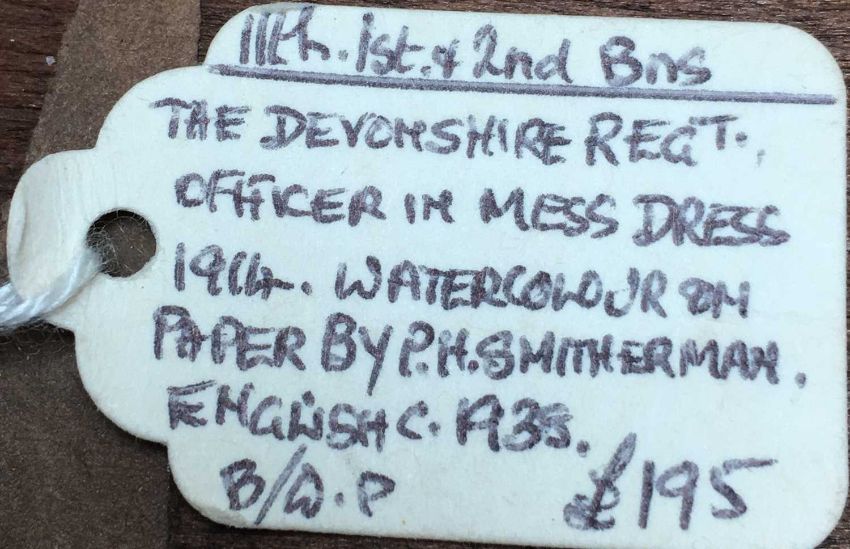 11th. 1st. & 2nd Bns
THE DEVONSHIRE REGT.,
OFFICER IN MESS DRESS
1914. WATERCOLOUR ON
PAPER BY P.H. SMITHERMAN.
ENGLISH C. 1938.
£195